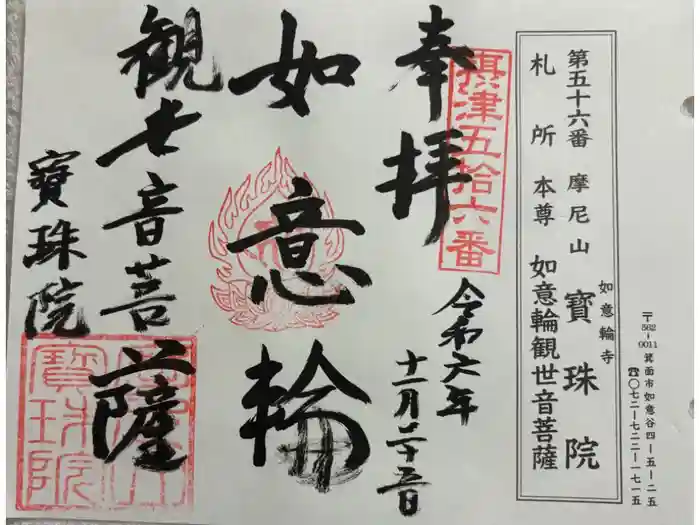 〒562-0011 箕面市如意谷四-五-二五
☎〇七二-七二二-一七一五
第五十六番 摩尼山 寶珠院
如意輪寺
札所本尊 如意輪観世音菩薩
奉拝
摂津五拾六番
令和六年
如意輪
観世音菩薩
寶珠院